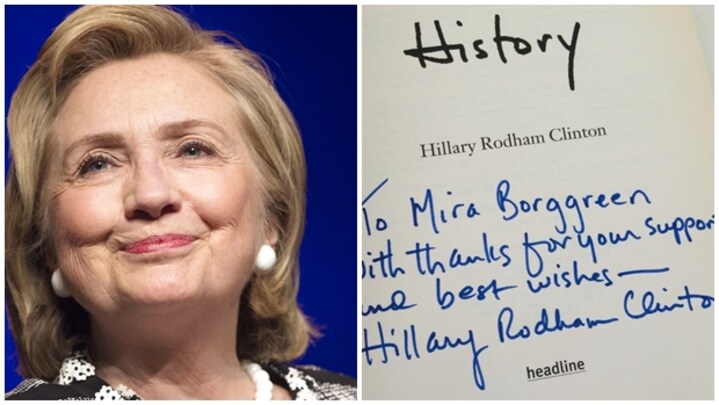 History
Hillary Rodham Clinton
To Mira Borggreen
with thanks for your support
and best wishes—
Hillary Rodham Clinto
headline